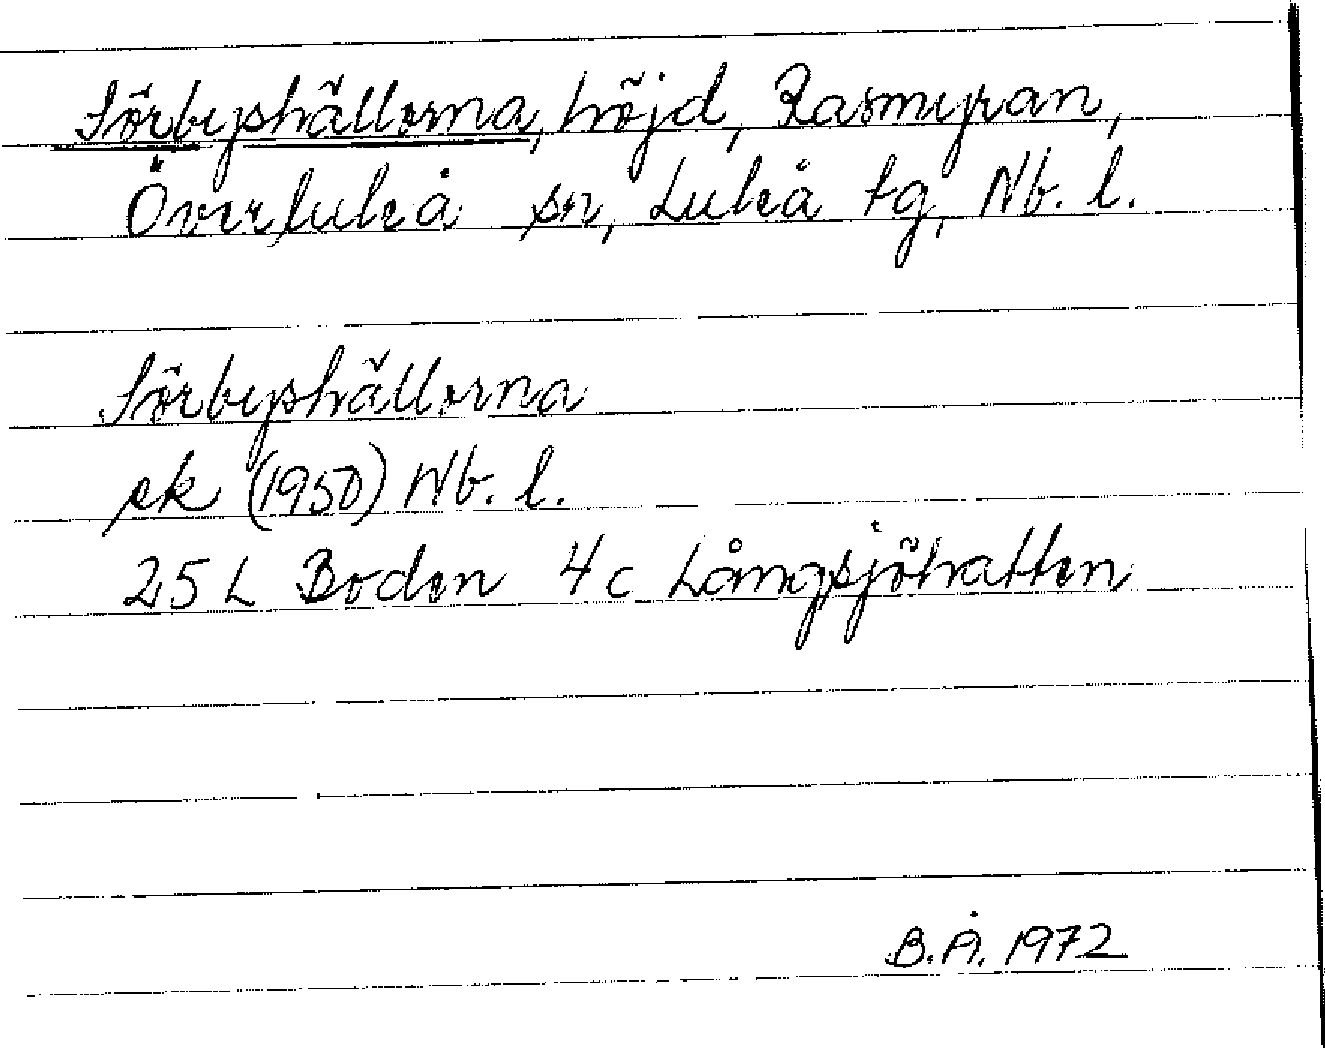 Sörbyshällorna, höjd, Rasmyran,
Överluleå sn, Luleå tg, Nb. l.
Sörbyshällorna
ek (1950) Nb. l.
25 L Boden 4 c Långsjöhatten
B.Å. 1972